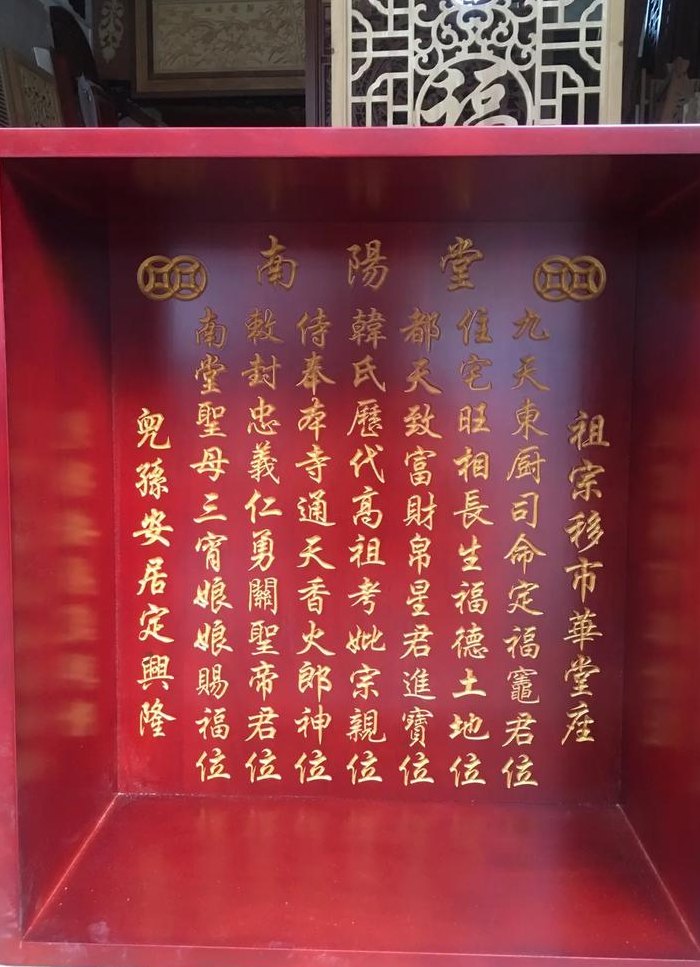 福
南陽堂
祖宗移市華堂座
九天東厨司命定福竈君位
住宅旺相長生福德土地位
都天致富財帛星君進寶位
韓氏歷代高祖考妣宗親位
侍奉本寺通天香火郎神位
敕封忠義仁勇關聖帝君位
南堂聖母三宵娘娘賜福位
兒孫安居定興隆